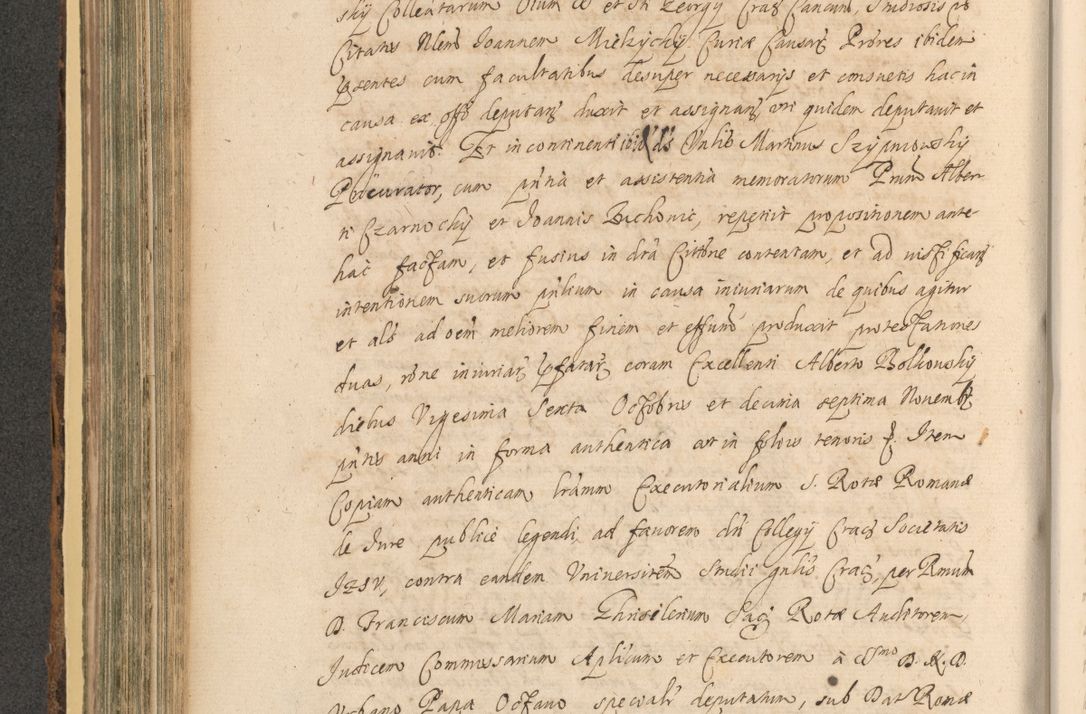 shÿ Colleatarum Oium et Sti Georgÿ Crac
Citatis Nlem Joannem Miekÿchÿ Curiæ Causarz Prores ibidem
pꝛsentes cum facultatibus desuper necessarÿs et consuetis hac in
causa ex offo deputarz duxit et assignarz, uti quidem deputauit et
assignauit. Et in continenti ibid. ds Vnlis Martinus Szÿmowskÿ
Procurator, cum pñtia et assistentia memoratorum Pnum Alber
ti Czarnochÿ et Joannis Zuchonic, repetiit propositionem ante
hac factam, et fusius in dta Cittōne contentam, et ad iustificarz
intentionem suorum pnlium in causa iniuriarum de quibus agitur
et als ad oem meliorem finem et effum produxit protestationes
duas, rōne iniuriarz ꝓfatarz coram Excellenti Alberto Bolkowskÿ
diebus Vigesima Sexta Octobris et decima septima Nouemb
pntis anni in forma authentica et in folijs tenoris Item
Copiam authenticam lrarum Executorialium S. Rotæ Romanæ
de Jure publicè legendi, ad fauorem dni Collegÿ Crac Societatis
IESV, contra eandem Vniuersitem Studii gnlis Crac, per Rmum
D. Franciscum Mariam Ghisilerium Sac Rotæ Auditorem,
Judicem Commissarium Aplicum et Executorem à SSmo D. N. D.
Vrbano Papa Octauo specialr deputatum, sub Dat Romæ